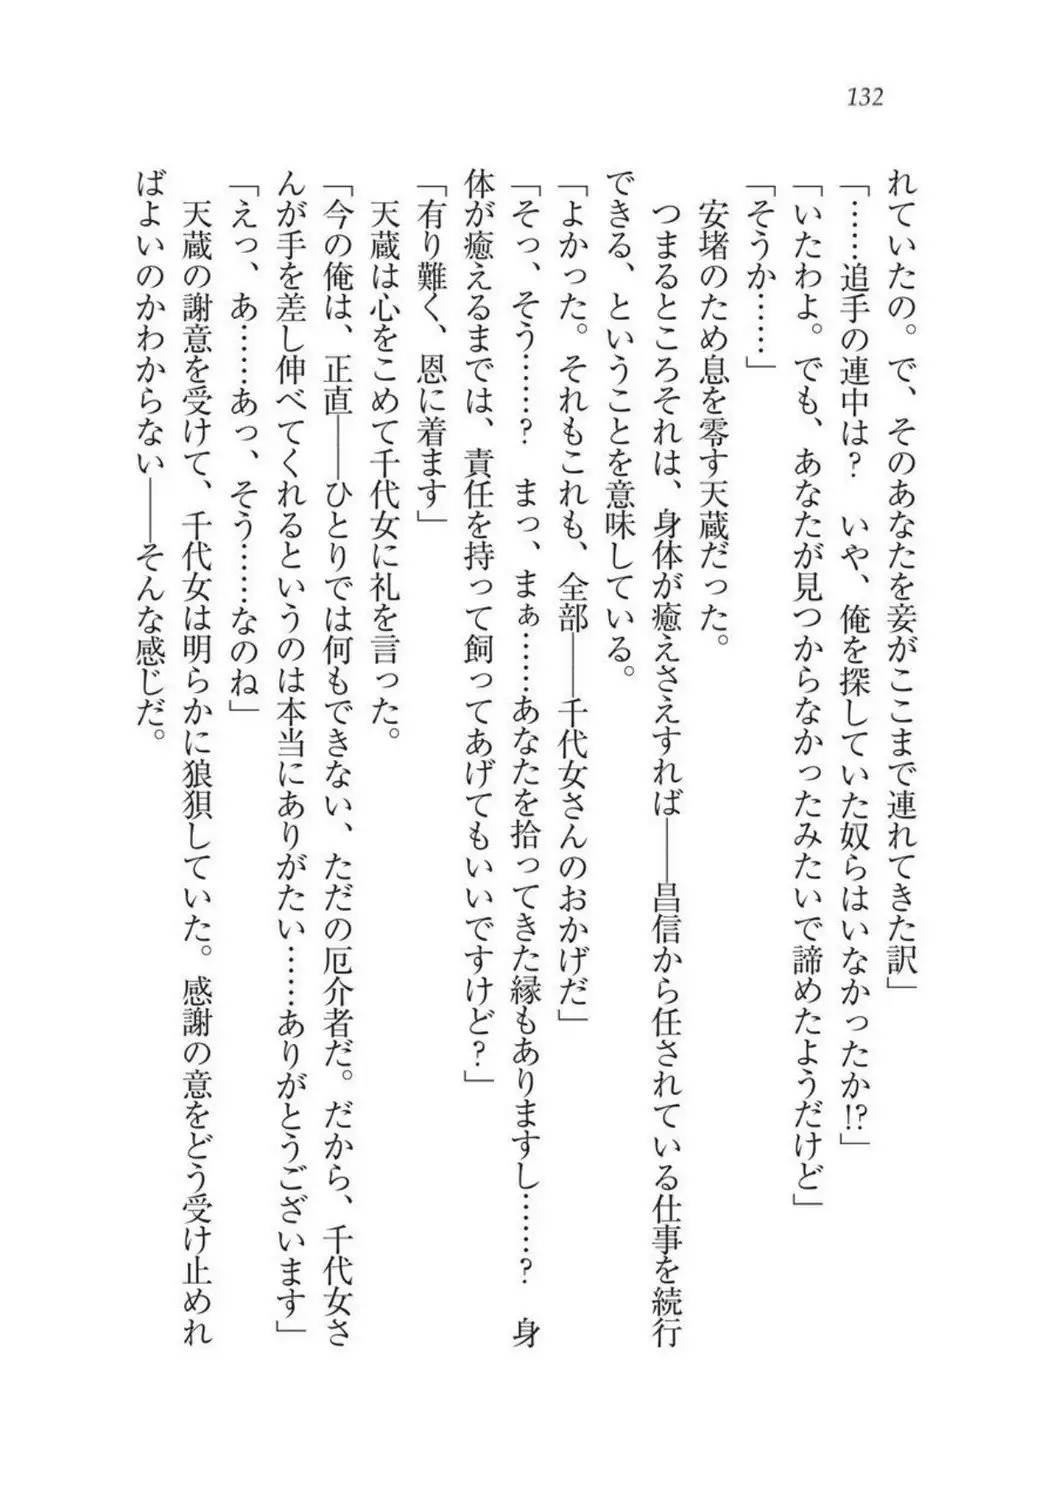 132
れていたの。で、そのあなたを妾がここまで連れてきた訳」
「……追手の連中は？　いや、俺を探していた奴らはいなかったか!?」
「いたわよ。でも、あなたが見つからなかったみたいで諦めたようだけど」
「そうか……」
　安堵のため息を零す天蔵だった。
　つまるところそれは、身体が癒えさえすれば――昌信から任されている仕事を続行
できる、ということを意味している。
「よかった。それもこれも、全部――千代女さんのおかげだ」
「そっ、そう……？　まっ、まぁ……あなたを拾ってきた縁もありますし……？　身
体が癒えるまでは、責任を持って飼ってあげてもいいですけど？」
「有り難く、恩に着ます」
　天蔵は心をこめて千代女に礼を言った。
「今の俺は、正直――ひとりでは何もできない、ただの厄介者だ。だから、千代女さ
んが手を差し伸べてくれるというのは本当にありがたい……ありがとうございます」
「えっ、あ……あっ、そう……なのね」
　天蔵の謝意を受けて、千代女は明らかに狼狽していた。感謝の意をどう受け止めれ
ばよいのかわからない――そんな感じだ。